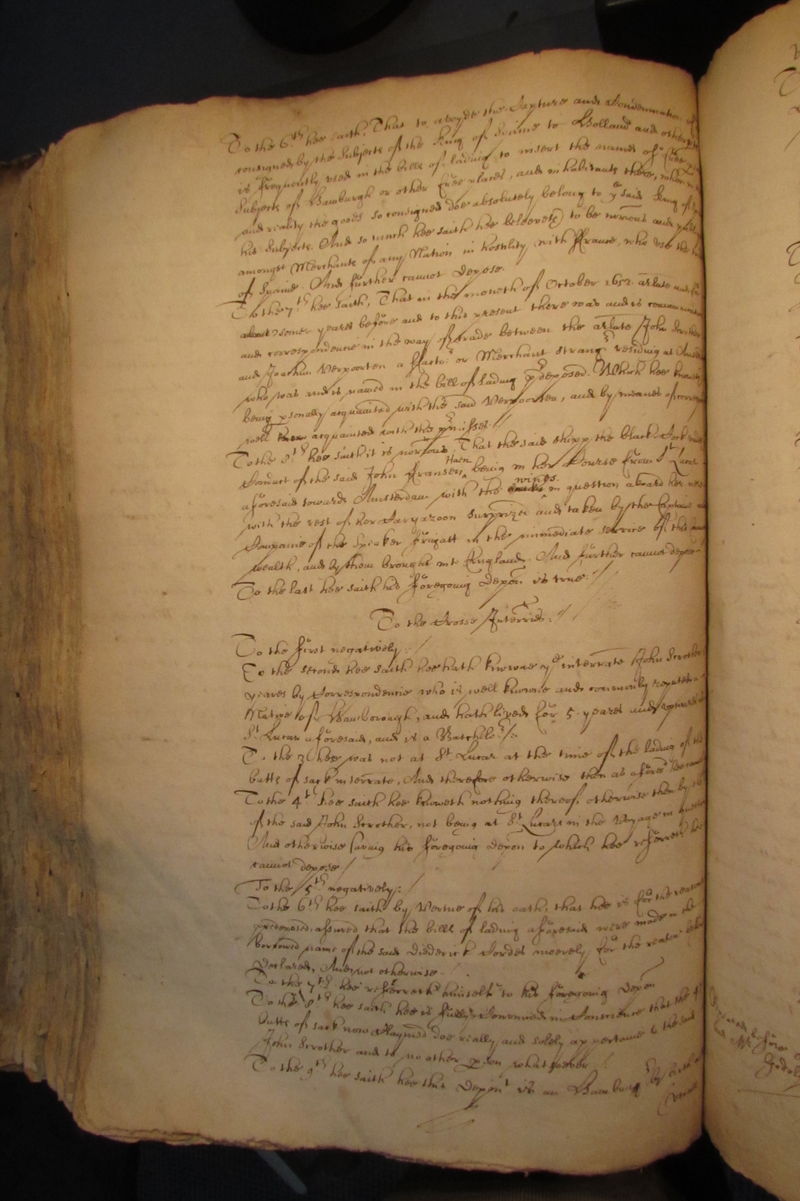 To the 6th hee saith, That to avoyde the Capture and Condemnation of
consigned by the Subjects of the King of Spaine to Holland and other
is frequently used in the bills of lading to insert the names of
Subjects of Hamburgh or other free places, and inhabitants there, when in
and reality the goods so consigned doe absolutely belong to ye said King of
his Subjects. And so much hee saith hee beleeveth to be notorious and
amongst Merchants of any Nation in hostility with France, who use the
of Spaine. And further cannot depose.
To the 7th hee saith, That in the moneth of October 1652 arlate and
about some yeares before and to this present there was and is
and correspondencie in the way of trade between the arlate John Strother
and Joachim Verpoorten a Factor or Merchant strangr residing at
who was and is named in the bill of lading predeposed. Which hee knoweth
being psonally acquainted with the said Verpoorten, and by meanes of
well acquainted with the pmisses
To the 8th hee saith it is notorious, That the said shipp the black Cock
Conduct of the said John Fransen, being in her Course from St Lucar
aforesaid towards Amsterdam with the wines in question aboard her was
with the rest of her Cargazoon surprized and taken by the Captaine and
Companie of the Frigatt in the immediate service of this
wealth, and by them brought into England. And further cannot depose
To the last hee saith his foregoing depon is true
To the Crosse Interries:
To the first negatively:
To the second hee saith hee hath knowne ye interrate John Strother
yeares by Correspondencie who is well knowne and commonly reputed
Native of Hamborough, and hath lived for 5 yeares and upwards
St Lucar aforesaid, and is a Batchelor
To the 3 hee was not at St Lucar at the time of the lading of the
butts of sack interrate, And therefore otherwise then as afore
To the 4th hee saith hee knoweth nothing thereof otherwise then by
of the said John Strother, not being at St Lucar in the voyage in
And otherwise saving his foregoing depon to which hee referreth hee
cannot depose
To the 5th negatively:
To the 6th hee saith by vertue of his oath, that hee is for the reasons
predeposed assured that the bills of lading aforesaid were made in the
borrowed name of the said Diederick Cordes meerely for the reason before
declared, And not otherwise.
To the 7th hee referreth himselfe to his foregoing depon
To the 8th hee saith hee is fully Convinced in Conscience that the
butts of sack now claymed doe really and solely appertaine to the said
John Strother and to no other pson whatsoever
To the 9th hee saith hee this Deponent is an